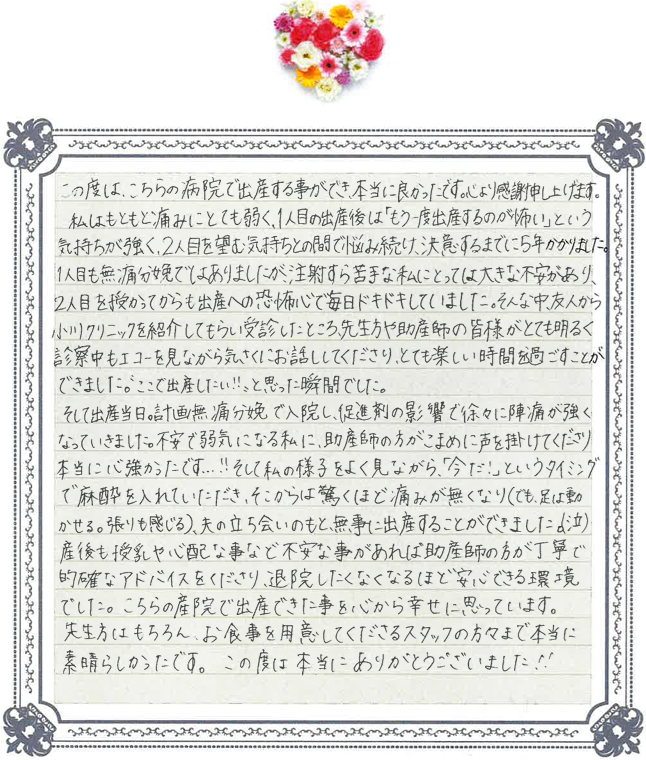 この度は、こちらの病院で出産する事ができ、本当に良かったです。心より感謝申し上げます。
私はもともと痛みにとても弱く、1人目の出産後は「もう一度出産するのが怖い」という
気持ちが強く、2人目を望む気持ちとの間で悩み続け、決意するまでに5年かかりました。
1人目も無痛分娩ではありましたが、注射すら苦手な私にとっては大きな不安があり、
2人目を授かってからも出産への恐怖心で毎日ドキドキしていました。そんな中友人から
小川クリニックを紹介してもらい受診したところ、先生方や助産師の皆様がとても明るく
診察中もエコーを見ながら気さくにお話ししてくださり、とても楽しい時間を過ごすことが
できました。"ここで出産したい!!"と思った瞬間でした。
そして出産当日。計画無痛分娩で入院し、促進剤の影響で徐々に陣痛が強く
なっていきました。不安で弱気になる私に、助産師の方がこまめに声を掛けてくださり
本当に心強かったです…!!そして私の様子をよく見ながら、「今だ!」というタイミング
で麻酔を入れていただき、そこからは驚くほど痛みが無くなり(でも、足は動
かせる。張りも感じる)、夫の立ち会いのもと、無事に出産することができました。(泣)
産後も授乳や心配な事など不安な事があれば助産師の方が丁寧で
的確なアドバイスをくださり、退院したくなくなるほど安心できる環境
でした。こちらの産院で出産できた事を心から幸せに思っています。
先生方はもちろん、お食事を用意してくださるスタッフの方々まで本当に
素晴らしかったです。この度は本当にありがとうございました!!